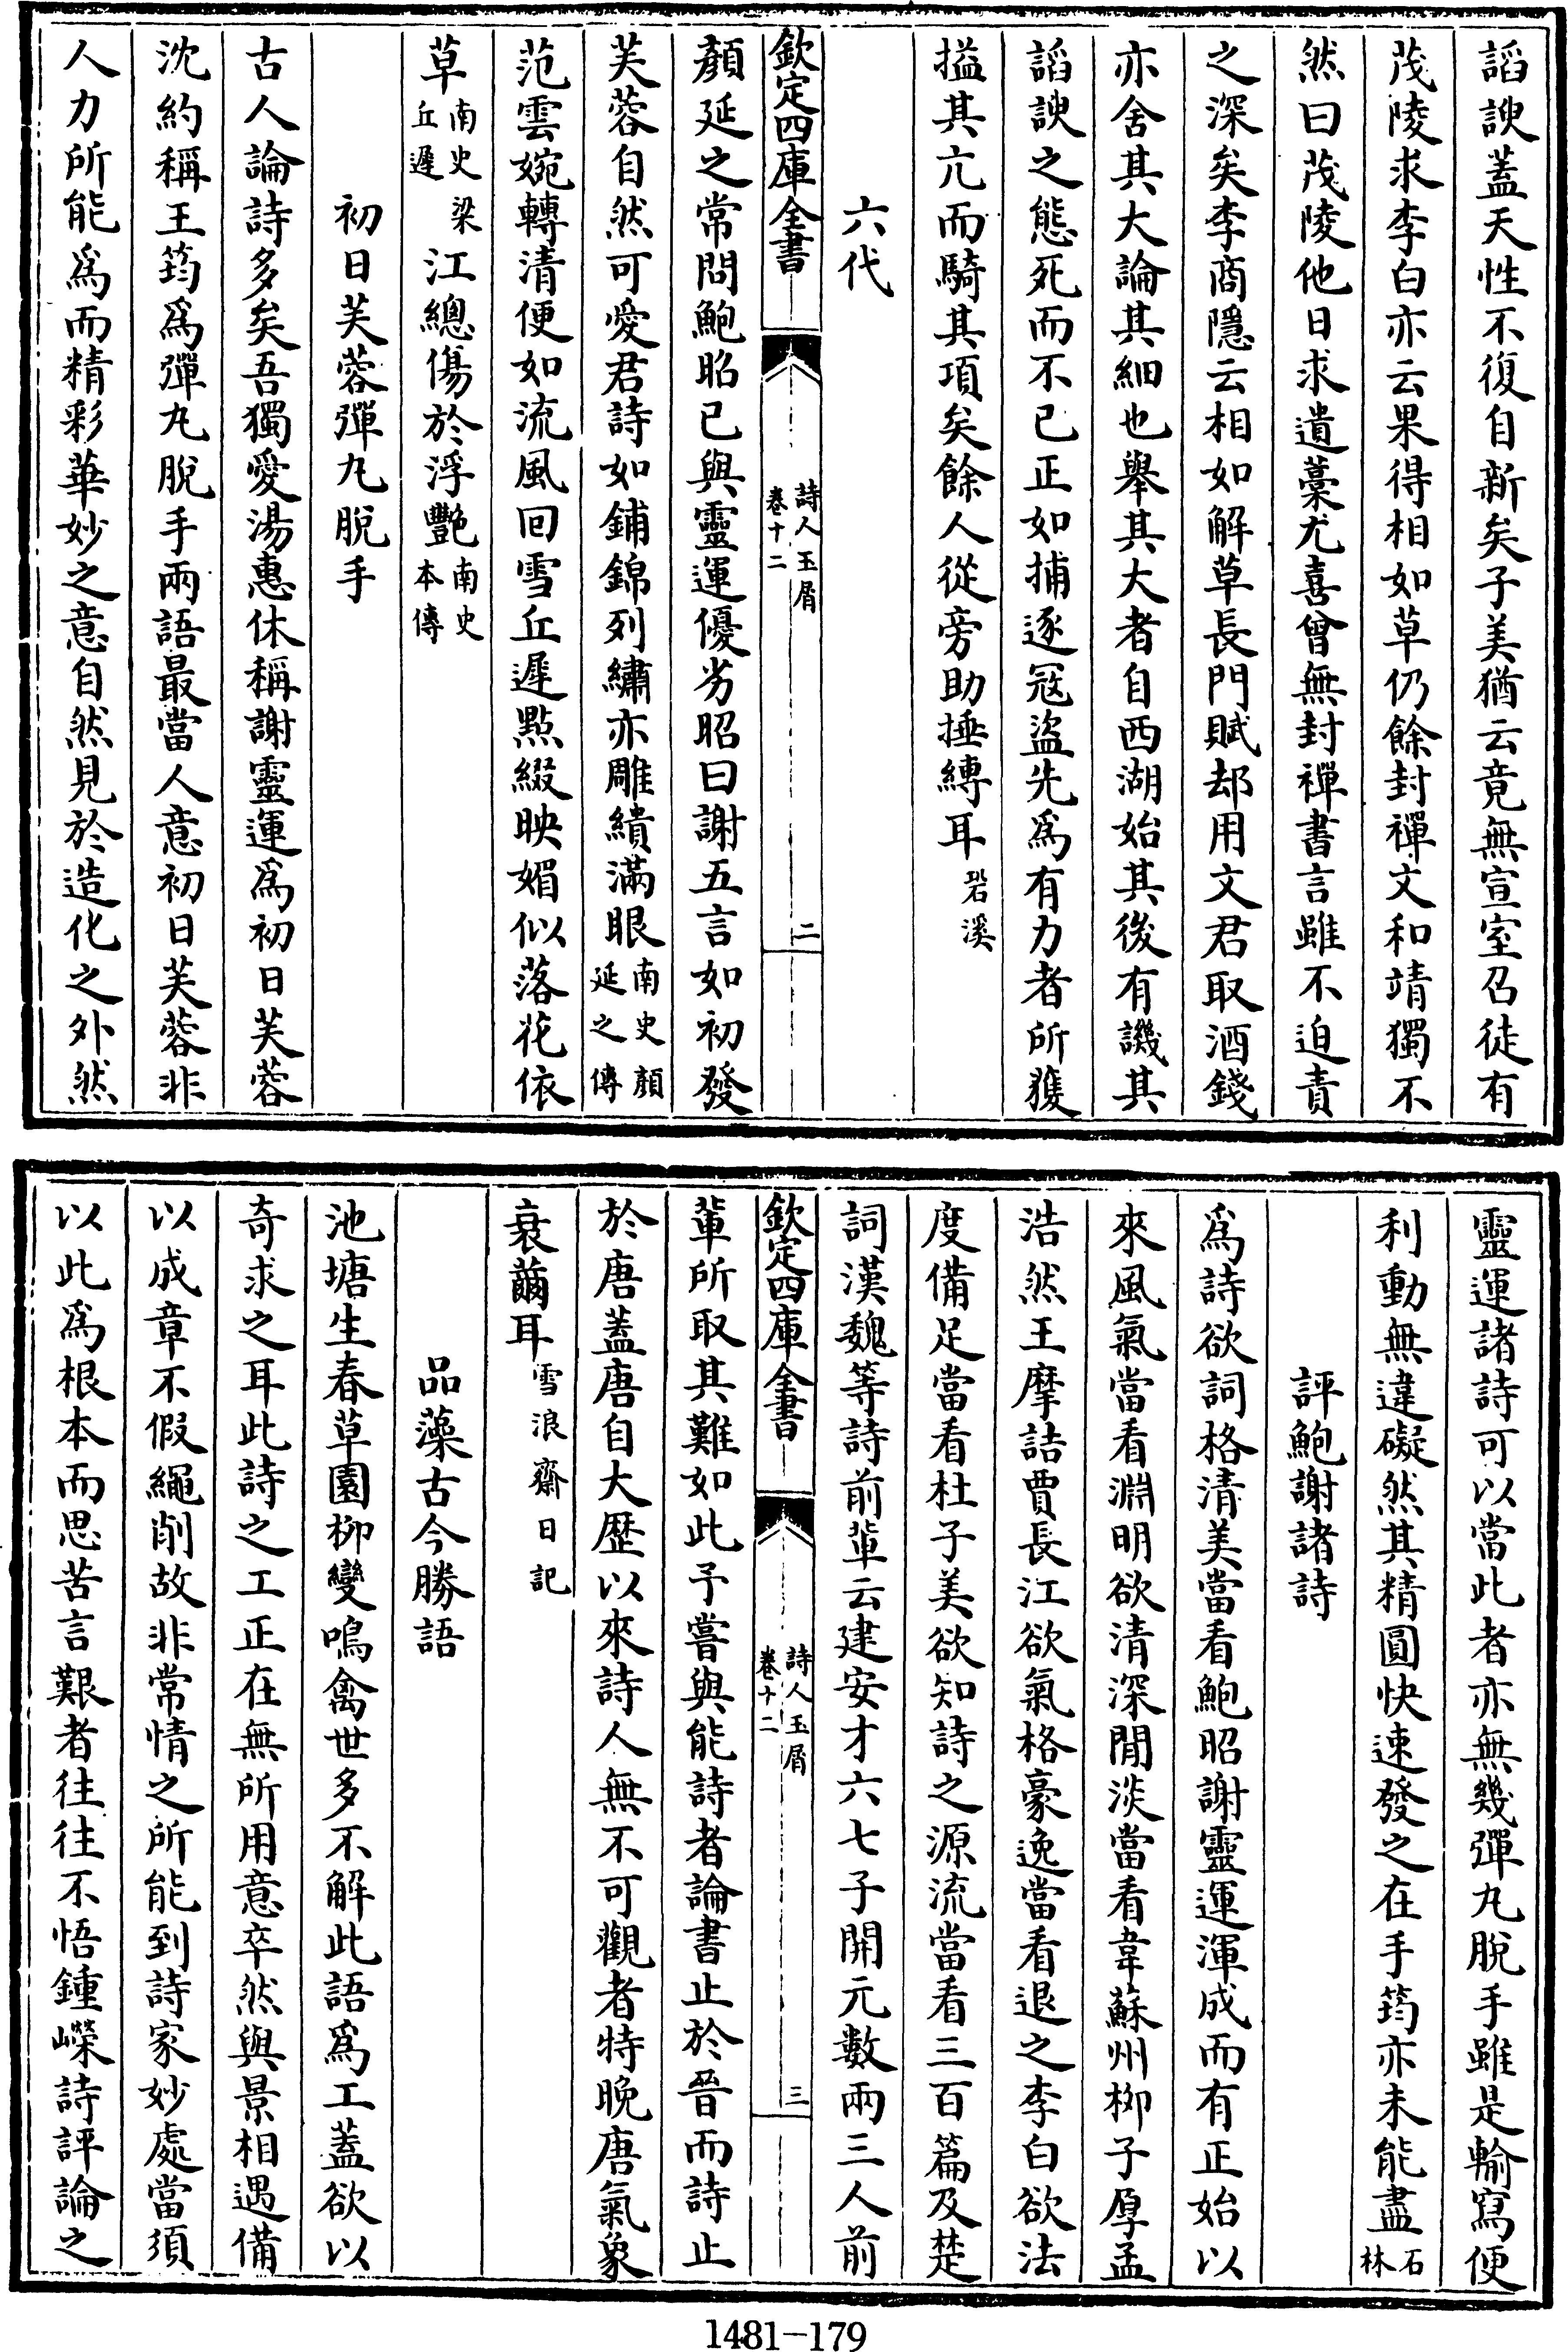 諂諛蓋天性不復自新矣子美猶云竟無宣室召徒有
茂陵求李白亦云果得相如草仍餘封禪文和靖獨不
然曰茂陵他日求遺藳尤喜曾無封禪書言雖不迫責
之深矣李商隱云相如解草長門賦却用文君取酒錢
亦舍其大論其細也舉其大者自西湖始其後有譏其
諂諛之態死而不已正如捕逐冦盜先爲有力者所獲
搤其亢而騎其項矣餘人從旁助捶縛耳 䂬溪
六代
欽定四庫全書 詩人玉屑 卷十二 二
顏延之常問鮑昭已與靈運優劣昭曰謝五言如初發
芙蓉自然可愛君詩如鋪錦列繡亦雕繢滿眼 南史顏延之傳
范雲婉轉清便如流風回雪丘遲點綴映媚似落花依
草 南史丘遲 梁江總傷於浮豔 南史本傳
初日芙蓉彈丸脫手
古人論詩多矣吾獨愛湯惠休稱謝靈運爲初日芙蓉
沈約稱王筠爲彈丸脫手兩語最當人意初日芙蓉非
人力所能爲而精彩華妙之意自然見於造化之外然
靈運諸詩可以當此者亦無幾彈丸脫手雖是輸寫便
利動無違礙然其精圓快速發之在手筠亦未能盡 石林
評鮑謝諸詩
爲詩欲詞格清美當看鮑昭謝靈運渾成而有正始以
來風氣當看淵明欲清深閒淡當看韋蘇州柳子厚孟
浩然王摩詰賈長江欲氣格豪逸當看退之李白欲法
度備足當看杜子美欲知詩之源流當看三百篇及楚
詞漢魏等詩前輩云建安才六七子開元數兩三人前
欽定四庫全書 詩人玉屑 卷十二 三
輩所取其難如此予嘗與能詩者論書止於晉而詩止
於唐蓋唐自大歷以來詩人無不可觀者特晚唐氣象
衰薾耳 雪浪齋日記
品藻古今勝語
池塘生春草園柳變鳴禽世多不解此語爲工蓋欲以
奇求之耳此詩之工正在無所用意卒然與景相遇備
以成章不假繩削故非常情之所能到詩家妙處當須
以此爲根本而思苦言艱者往往不悟鍾嶸詩評論之
1481-179